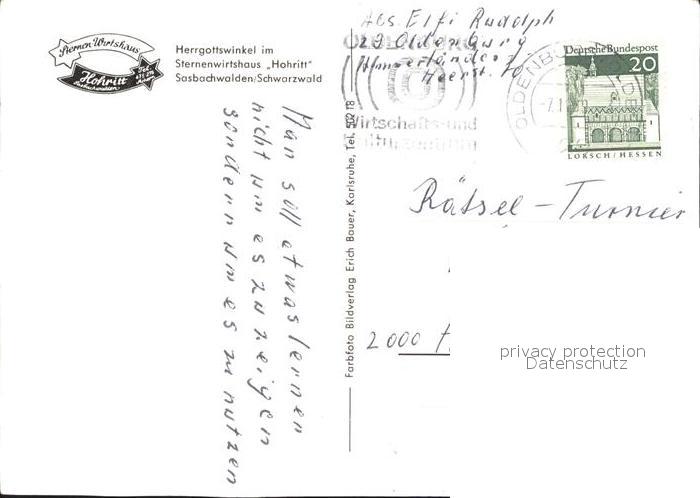 Sternen-Wirtshaus
Hohritt
Sasbachwalden
Herrgottswinkel im
Sternenwirtshaus „Hohritt"
Sasbachwalden/Schwarzwald
Man soll etwas lernen
nicht um es zu zeigen
sondern um es zu nutzen
Farbfoto Bildverlag Erich Bauer, Karlsruhe, Tel. 50218
Abs. Elfi Rudolph
29 Oldenburg
Ammerländer
Heerst. 70
Wirtschafts- und
Kulturzentrum
OLDENBU
-7.1
Deutsche Bundespost
20
LORSCH/HESSEN
Rätsel-Turnier
2000
privacy protection
Datenschutz